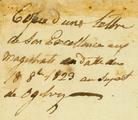 Copie d'une lettre
de Son Excellence aux
magistrats en date du
8 9bre 1823 au sujet
de Ogilvy